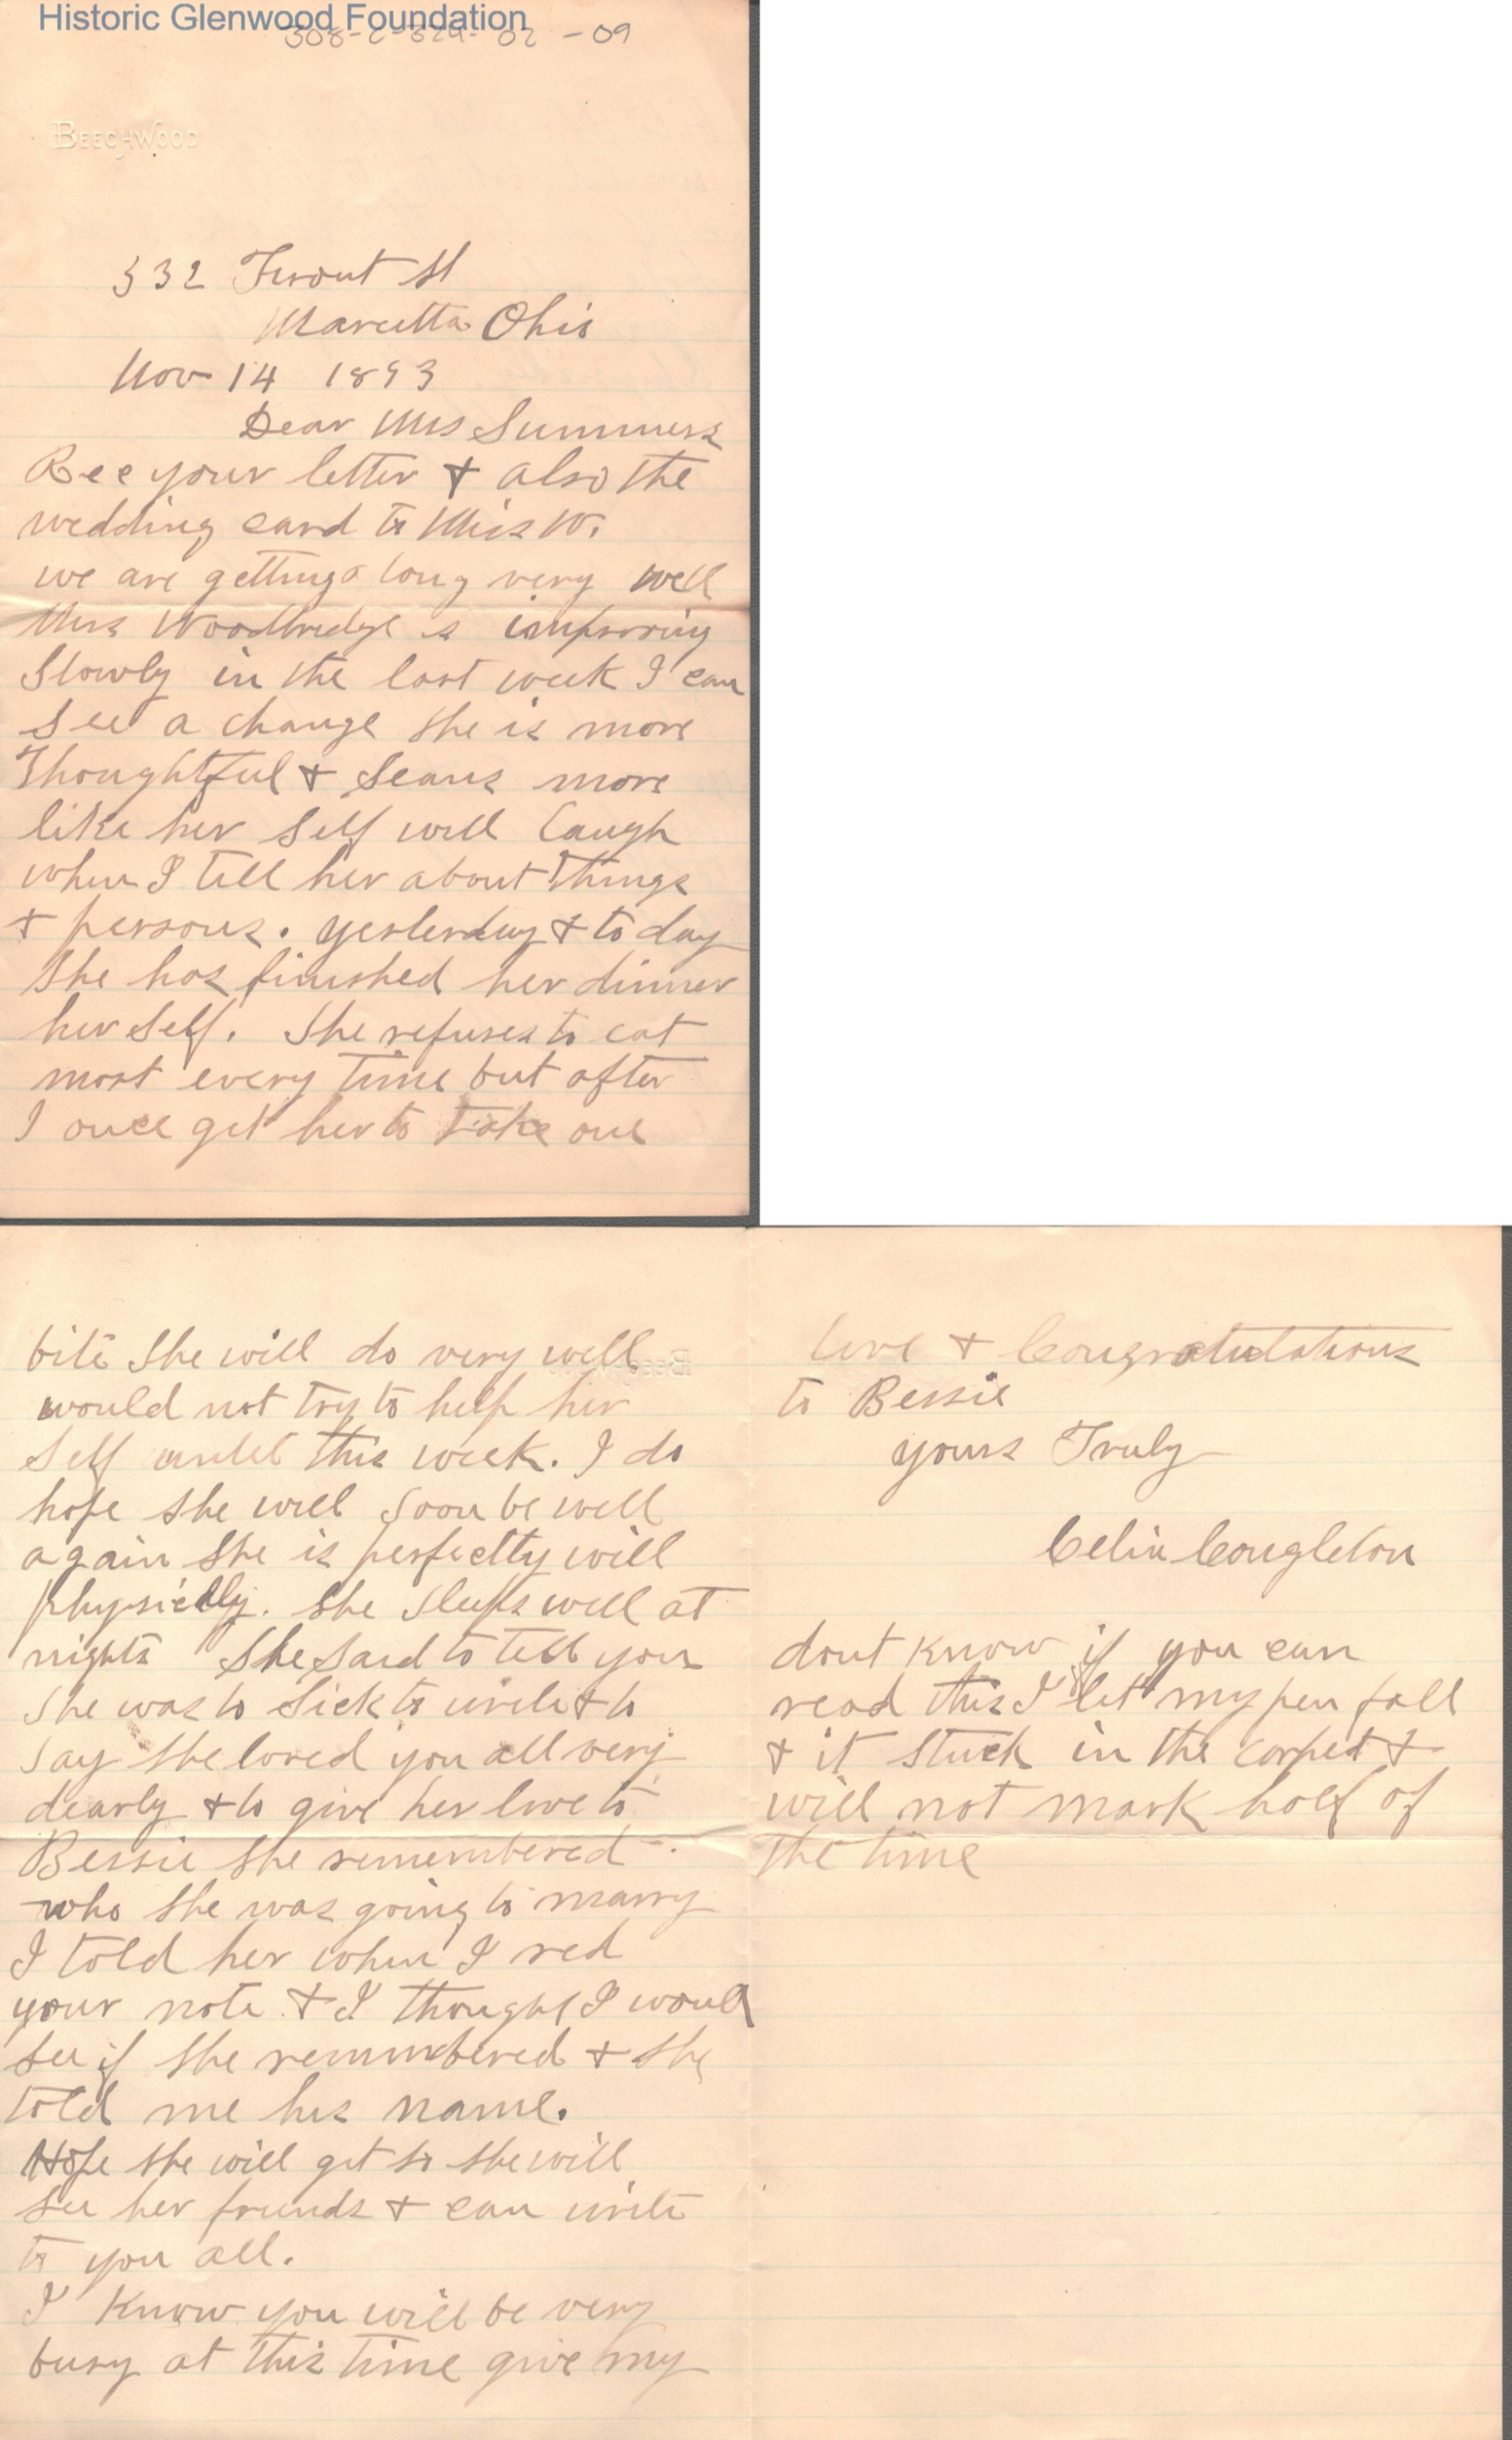 Historic Glenwood Foundation
308-C-324-02-09
BEECHWOOD
332 Front St
Marietta Ohio
Nov 14 1893
Dear Mrs Summers
Rec your letter & also the
wedding card to Miss W.
we are getting along very well
Miss Woodbridge is improving
Slowly in the last week I can
See a change She is more
Thoughtful & Seams more
like her Self will Laugh
when I tell her about Things
& persons. yesterday & to day
She has finished her dinner
her Self. She refuses to eat
most every time but after
I once get her to take one
bite She will do very well
would not try to help her
Self untill this week. I do
hope She will Soon be well
again She is perfectly well
physiclly. She Sleeps well at
nights She Said to tell you
She was to Sick to write & to
Say She loved you all very
dearly & to give her love to
Bessie She remembered
who She was going to marry
I told her when I red
your note & I thought I would
See if She remembered & She
told me his name.
Hope She will get So She will
See her friends & can write
to you all.
I Know you will be very
busy at this time give my
love & Congratulations
to Bessie
yours Truly
Celia Congleton
dont know if you can
read this I let my pen fall
& it Stuck in the carpet &
will not mark half of
the time